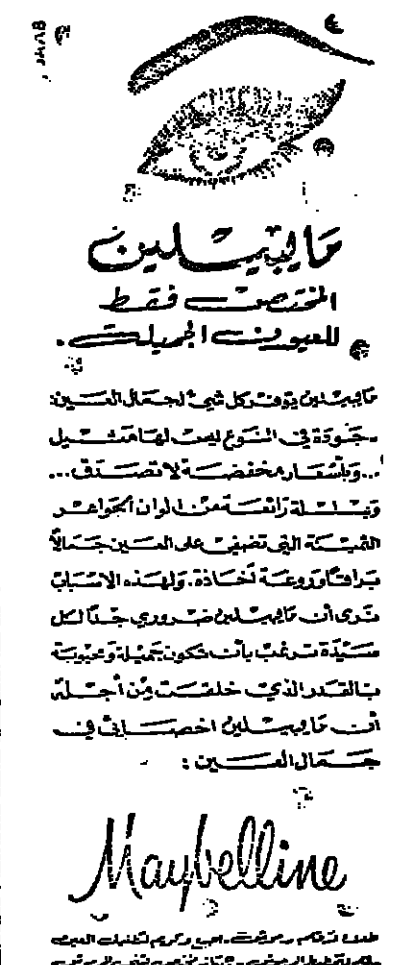 مايبيلين
المختصة فقط
للعيون الجميلة.
مايبيلين يوفر كل شيء لجمال العين:
جودة في النوع ليس لها مثيل
...وبأسعار مخفضة لا تصدق...
وسلسلة رائعة من الوان الجواهر
الثمينة التي تضفي على العين جمالاً
براقاً وروعة أخاذة. ولهذه الاسباب
نرى أن مايبيلين ضروري جداً لكل
سيدة ترغب بأن تكون جميلة ومحبوبة
بالقدر الذي خلقت من أجله
أن مايبيلين اخصائي في
جمال العين:
Maybelline